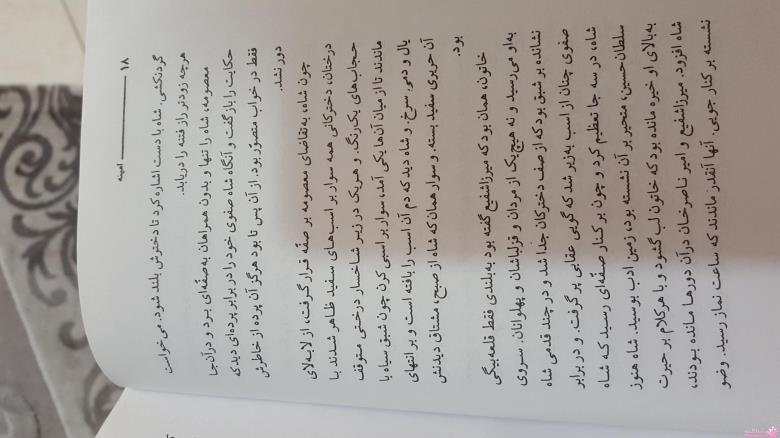 ۱۸ ــــــــ امینه
گردنکشی. شاه با دست اشاره کرد تا دخترش بلند شود. می‌خواست
هرچه زودتر راز فتنه را دریابد.
معصومه، شاه را تنها و بدون همراهان به صفّه‌ای برد و در آن‌جا
حکایت را بازگفت و آنگاه شاه صفوی خود را در برابر پرده‌ای دید که
فقط در خواب متصوّر بود. از آن پس تا بود هرگز آن پرده از خاطرش
دور نشد.
چون شاه، به تقاضای معصومه بر صفّه قرار گرفت، از لابه‌لای
درختان، دخترکانی همه سوار بر اسب‌های سفید ظاهر شدند با
حجاب‌های یک‌رنگ. و هر یک در زیر شاخسار درختی متوقف
ماندند تا از میان آن‌ها یکی آمد، سوار بر اسبی کرن چون شبق سیاه با
یال و دمی سرخ. و شاه دید که دم آن اسب را بافته است و بر انتهای
آن حریری سفید بسته. و سوار همان که شاه از صبح، مشتاق دیدنش
بود.
خاتون، همان بود که میرزاشفیع گفته بود به بلندی فقط قلعه‌بیگی
به او می‌رسید و نه هیچ‌یک از مردان و قزلباشان و پهلوانان. سروی
نشانده بر شبق بود که از صف دخترکان جدا شد و در چند قدمی شاه
صفوی چنان از اسب به زیر شد که گویی عقابی پر گرفت. و در برابر
شاه، در سه جا تعظیم کرد و چون بر کنار صفّه‌ای رسید که شاه
سلطان حسین، متحیر بر آن نشسته بود، زمین ادب بوسید. شاه هنوز
به بالای او خیره مانده بود که خاتون لب گشود و با هر کلام بر حیرت
شاه افزود. میرزاشفیع و امیر ناصرخان در آن دورها مانده بودند،
نشسته بر کنار جویی. آنها آنقدر ماندند که ساعت نماز رسید. وضو